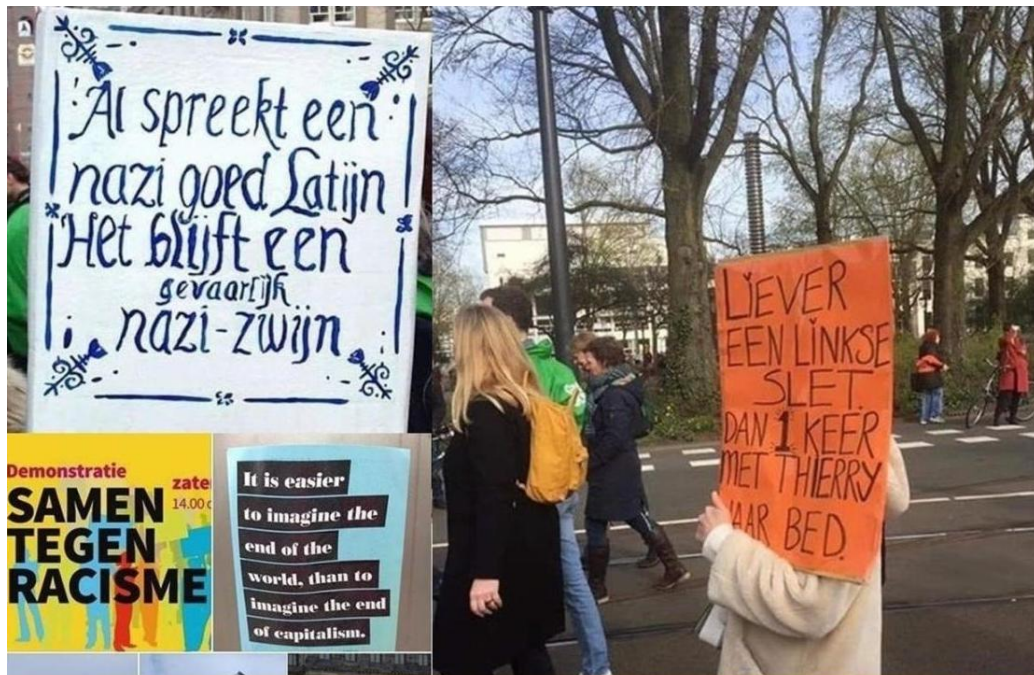 'Al spreekt een
nazi goed Latijn
Het blijft een
gevaarlijk
nazi-zwijn
LIEVER
EEN LINKSE
SLET.
DAN 1 KEER
MET THIERRY
NAAR BED.
Demonstratie
SAMEN
TEGEN
RACISME
zate
14.00
It is easier
to imagine the
end of the
world, than to
imagine the end
of capitalism.